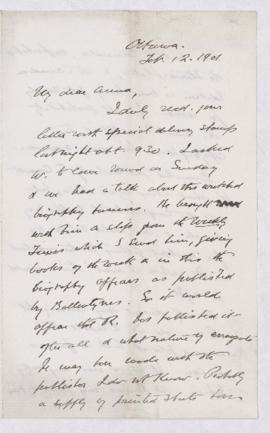 Ottawa.
Feb. 12. 1901
My dear Anna,
I duly recd. your
letter with special delivery stamps
last night abt. 9.30. I asked
W. to come round on Sunday
& we had a talk about this wretched
biography business. He brought
with him a slip from the Weekly
Times which I send him, giving
books of the week & in this the
biography appears as published
by Ballantynes. So it would
appear that R. has published it
after all & what nature of arrangets
he may have made with the
publisher I do not know. Probably
a supply of printed sheets